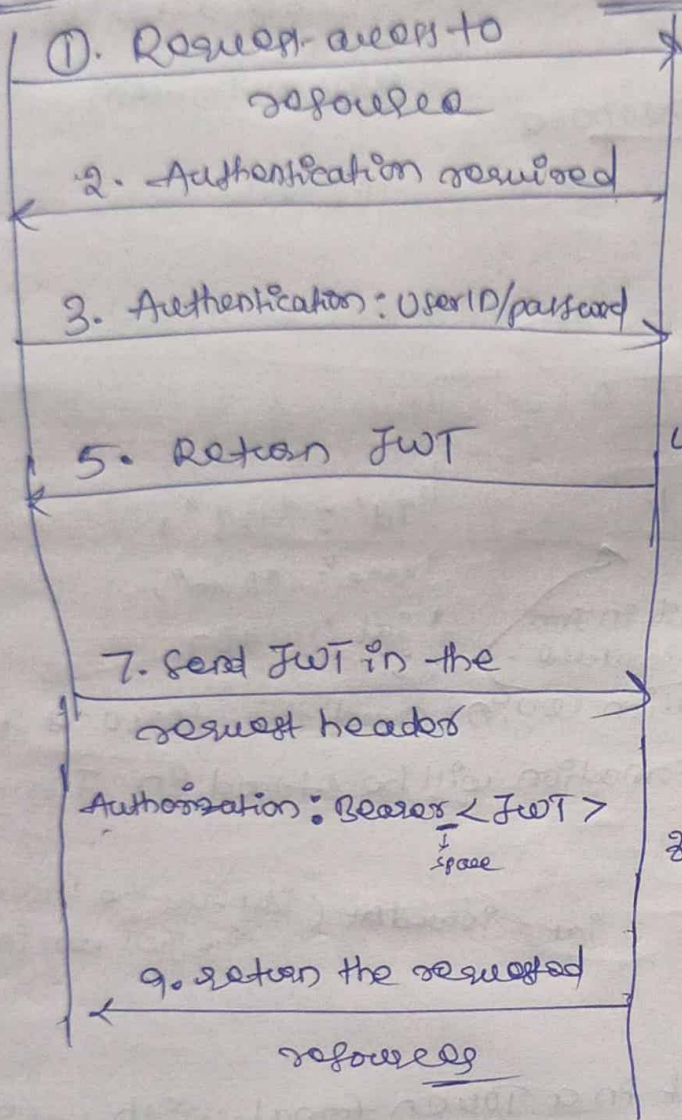 1. Request access to
resource
2. Authentication required
3. Authentication: UserID/password
5. Return JWT
7. Send JWT in the
request header
Authorization: Bearer <JWT>
space
9. return the requested
resources